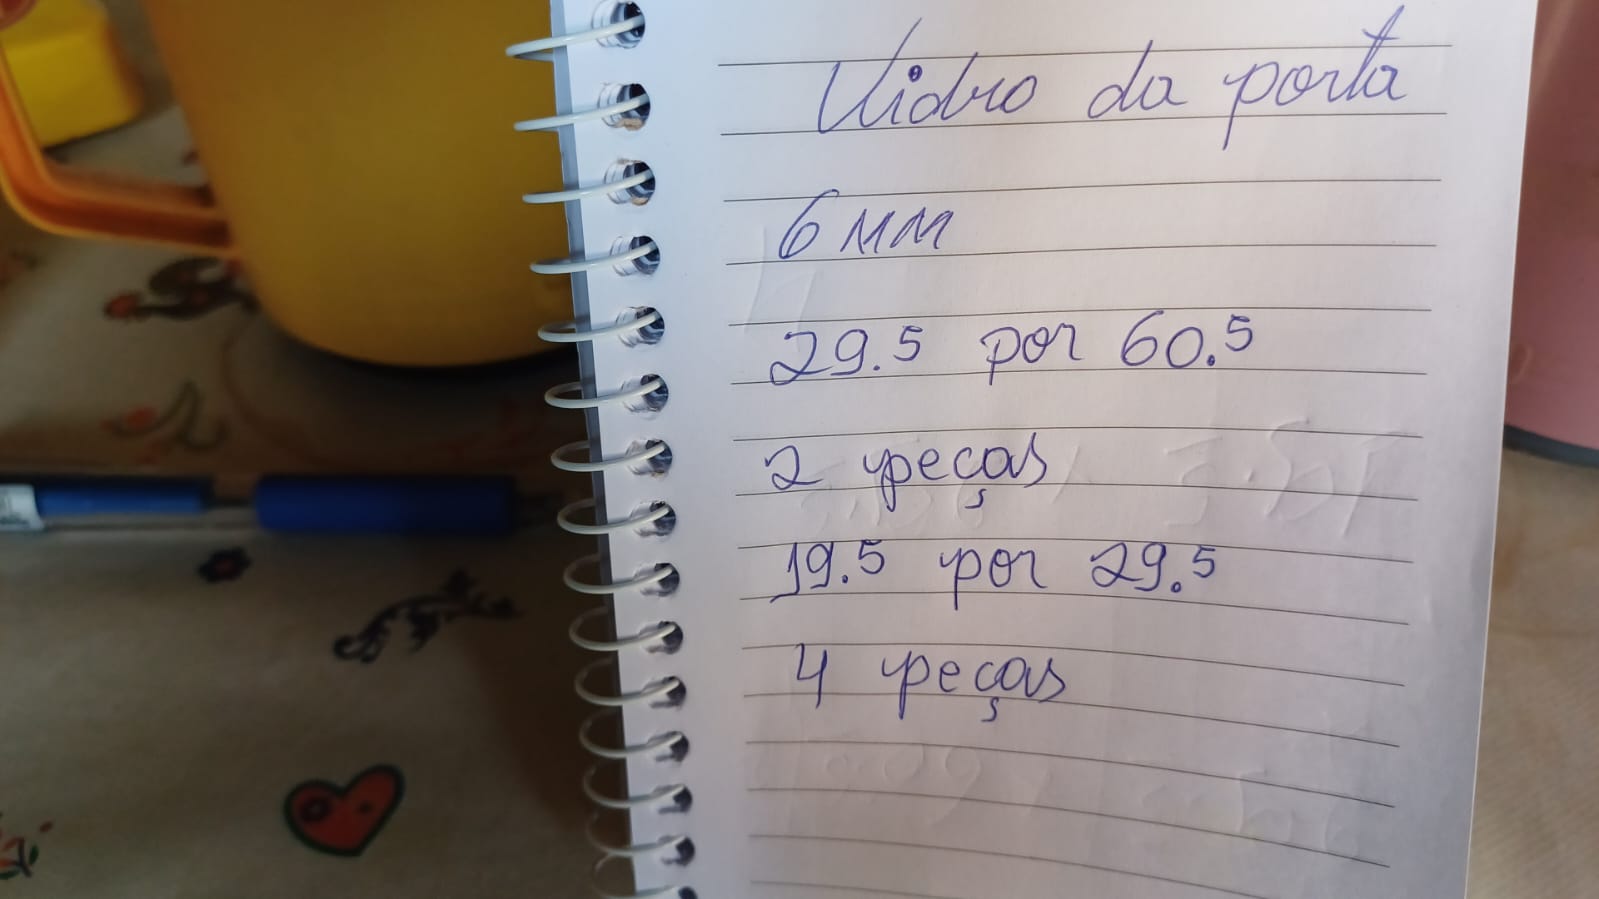 Vidro da porta
6 mm
29.5 por 60.5
2 peças
19.5 por 29.5
4 peças